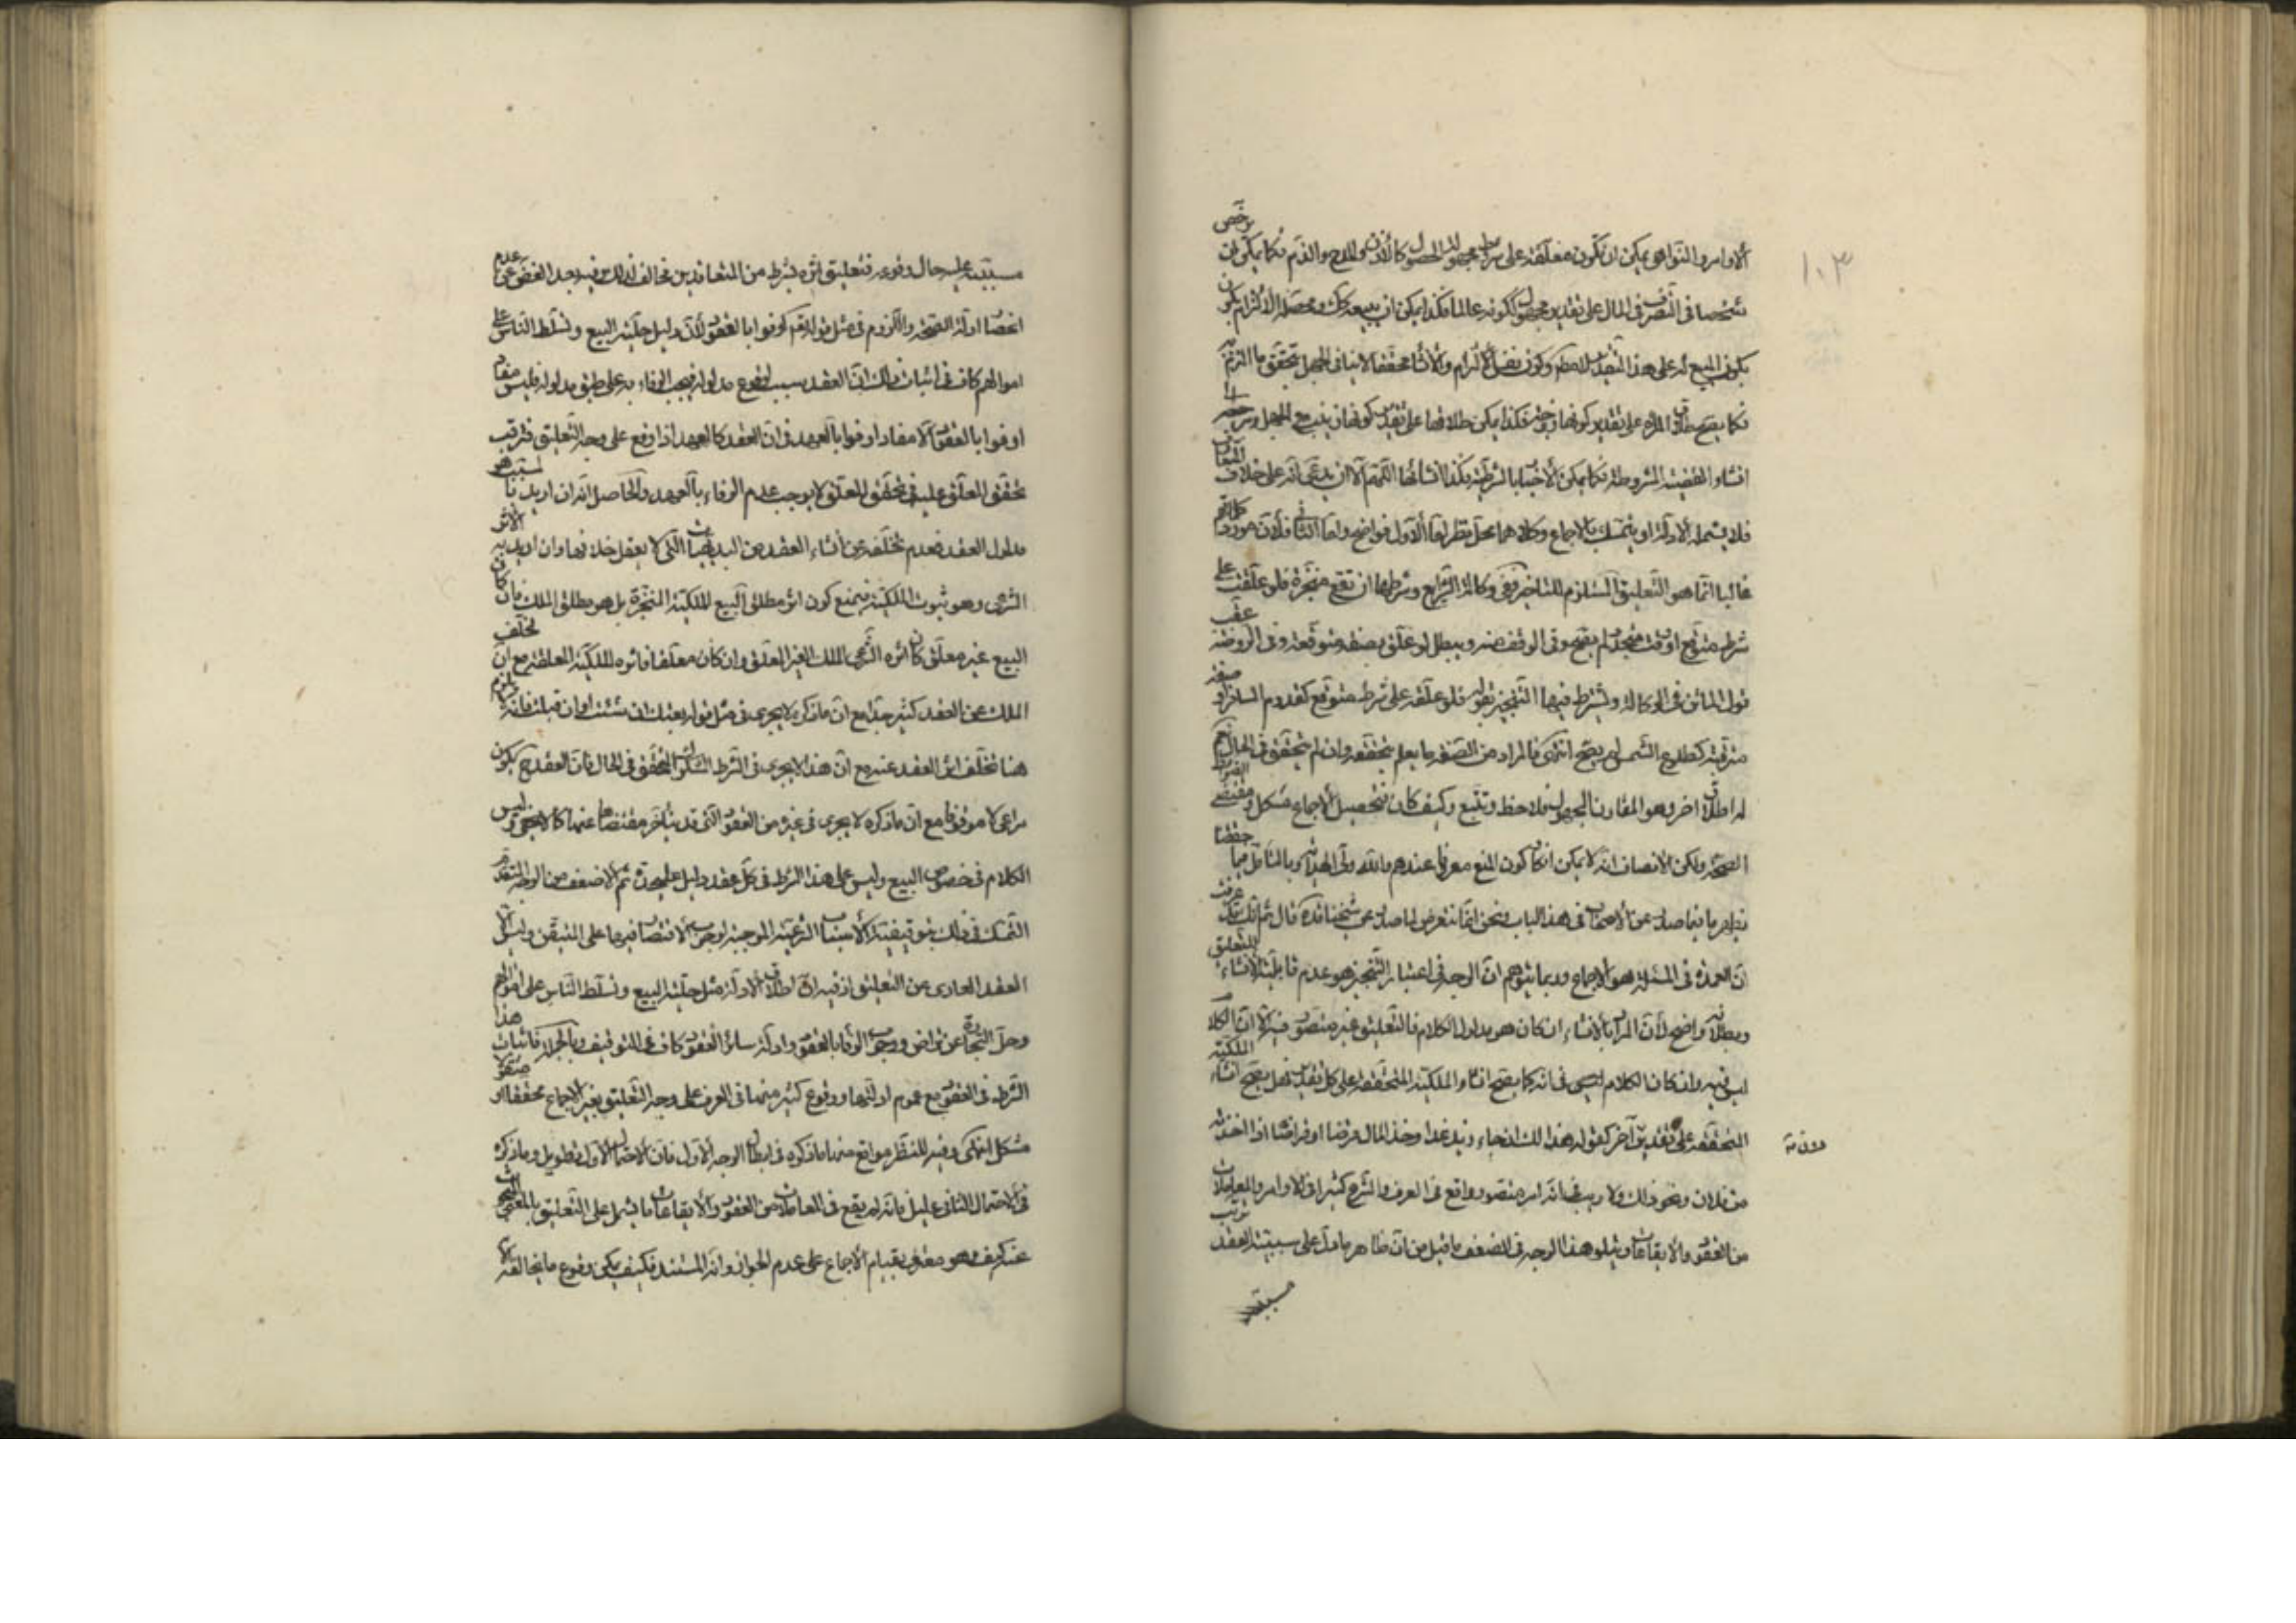 ١٠٣
الاوامر والنواهى يمكن ان تكون معلقة على شرط مجهول الحصول كالاذن والمدح والذم فكما يمكن ان يرخص
شخصا فى التصرف فى المال على تقدير مجهول ككونه عالما فكذا يمكن ان يبيعه كك ومحصله الالتزام بكون
بكون المبيع له على هذا التقدير وكون نفس الالتزام والانشاء محققا لا ينافى الجهل بتحقق ما التزم به
فكما يصح طلاق المراة على تقدير كونها زوجته فكذا يمكن طلاقها على تقدير كونها زينب مع الجهل
انشاء القضية المشروطة فكما يمكن الاخبار بالشرطية فكذا انشائها اللهم الا ان يدعى انه على خلاف المتعارف
فلا يشمله الادلة او يتمسك بالاجماع وكلاهما محل نظر اما الاول فواضح واما الثانى فلان مورد كلماتهم
غالبا انما هو التعليق المستلزم للتاخير ففى وكالة الشرايع وشرطها ان تقع منجزة فلو علقت على
شرط متوقع او وقت متجدد لم يصح وفى الوقف منه ويبطل لو علق بصفة متوقعة وفى الروضة عقب
قول الماتن فى الوكالة ويشترط فيها التنجيز بقوله فلو علقه على شرط متوقع كقدوم المسافر او صفة
مترقبة كطلوع الشمس لم يصح انتهى فالمراد من الصفة ما يعلم بتحققه وان لم يتحقق فى الحال
له اطلاق اخر وهو المقارن المجهول فلاحظ وتتبع وكيف كان فتحصيل الاجماع مشكل ومقتضى القواعد
الصحة ولكن الانصاف انه لا يمكن انكار كون المنع معروفا عندهم والله ولى الهداية وبالتامل فيما حققنا
يظهر ما فيما صدر عن الاصحاب فى هذا الباب ونحن انما نتعرض لما صدر عن شيخنا قده قال ثم انك قد عرفت
ان العمدة فى المسئلة هو الاجماع وربما يتوهم ان الوجه فى اعتبار التنجيز هو عدم قابلية الانشاء للتعليق
وبطلانه واضح لان المراد بالانشاء ان كان هو مدلول الكلام فالتعليق غير متصور فيه الا ان الكلام
ليس فيه وان كان الكلام فى انه كما يصح انشاء الملكية المتحققة على كل تقدير فهل يصح انشاء الملكية
المتحققة على تقدير دون آخر كقوله هذا لك ان جاء زيد غدا وخذ المال قرضا او قراضا اذا اخذته
من فلان ونحو ذلك ولا ريب فى انه امر متصور واقع فى العرف والشرع كثيرا فى الاوامر والمعاملات
من العقود والايقاعات ويتلو هذا الوجه فى الضعف ما قيل من ان ظاهر ما دل على سببية العقد ترتب
مسببه
مسببه عليه حال وقوعه فتعليق اثره بشرط من المتعاقدين مخالف لذلك وفيه بعد الغض عن عدم
انحصار ادلة الصحة واللزوم فى مثل قوله تعم اوفوا بالعقود لان دليل حلية البيع وتسلط الناس على
اموالهم كاف فى اثبات ذلك ان العقد سبب لوقوع مدلوله فيجب الوفاء به على طبق مدلوله فليس مفاد
اوفوا بالعقود الا مفاد اوفوا بالعهد فى ان العقد كالعهد اذا وقع على وجه التعليق فترقب
تحقق المعلق عليه فى تحقق المعلق لا يوجب عدم الوفاء بالعهد والحاصل انه ان اريد بالمسبب هو
مدلول العقد فعدم تخلفه عن انشاء العقد من البديهيات التى لا يعقل خلافها وان اريد به الاثر
الشرعى وهو ثبوت الملكية فيمنع كون اثر مطلق البيع الملكية المنجزة بل هو مطلق الملك فان كان
البيع غير معلق كان اثره الشرعى الملك الغير المعلق وان كان معلقا فاثره الملكية المعلقة مع ان تخلف
الملك عن العقد كثير جدا مع ان ما ذكره لا يجرى فى مثل قوله بعتك ان شئت او ان قبلت فانه لا يلزم
هنا تخلف اثر العقد عنه مع ان هذا لا يجرى فى الشرط المشكوك المتحقق فى الحال فان العقد ح يكون
مراعى لا موقوفا مع ان ما ذكره لا يجرى فى غيره من العقود التى قد يتاخر مقتضاها عنها كما لا يخفى وليس
الكلام فى خصوص البيع وليس على هذا الشرط فى كل عقد دليل عليحدة ثم الاضعف من الوجه المتقدم
التمسك فى ذلك بتوقيفية الاسباب الشرعية الموجبة لوجوب الاقتصار فيها على المتيقن وليس الا
العقد العارى عن التعليق اذ فيه ان اطلاق الادلة مثل حلية البيع وتسلط الناس على اموالهم
وحل التجارة عن تراض ووجوب الوفاء بالعقود وادلة سائر العقود كاف فى التوقيف وبالجملة فاثبات هذا
الشرط فى العقود مع عموم ادلتها ووقوع كثير منها فى العرف على وجه التعليق بغير الاجماع محققا او منقولا
مشكل انتهى وفيه للنظر مواقع منها ما ذكره فى ابطال الوجه الاول فان الاحتمال الاول تطويل وما ذكره
فى الاحتمال الثانى عليل فانه لم يقع فى المعاملات من العقود والايقاعات ما يشمل على التعليق بالمعنى المبحوث
عنه كيف وهو معترف بقيام الاجماع على عدم الجواز وانه المستند فكيف يمكن وقوع ما يخالفه